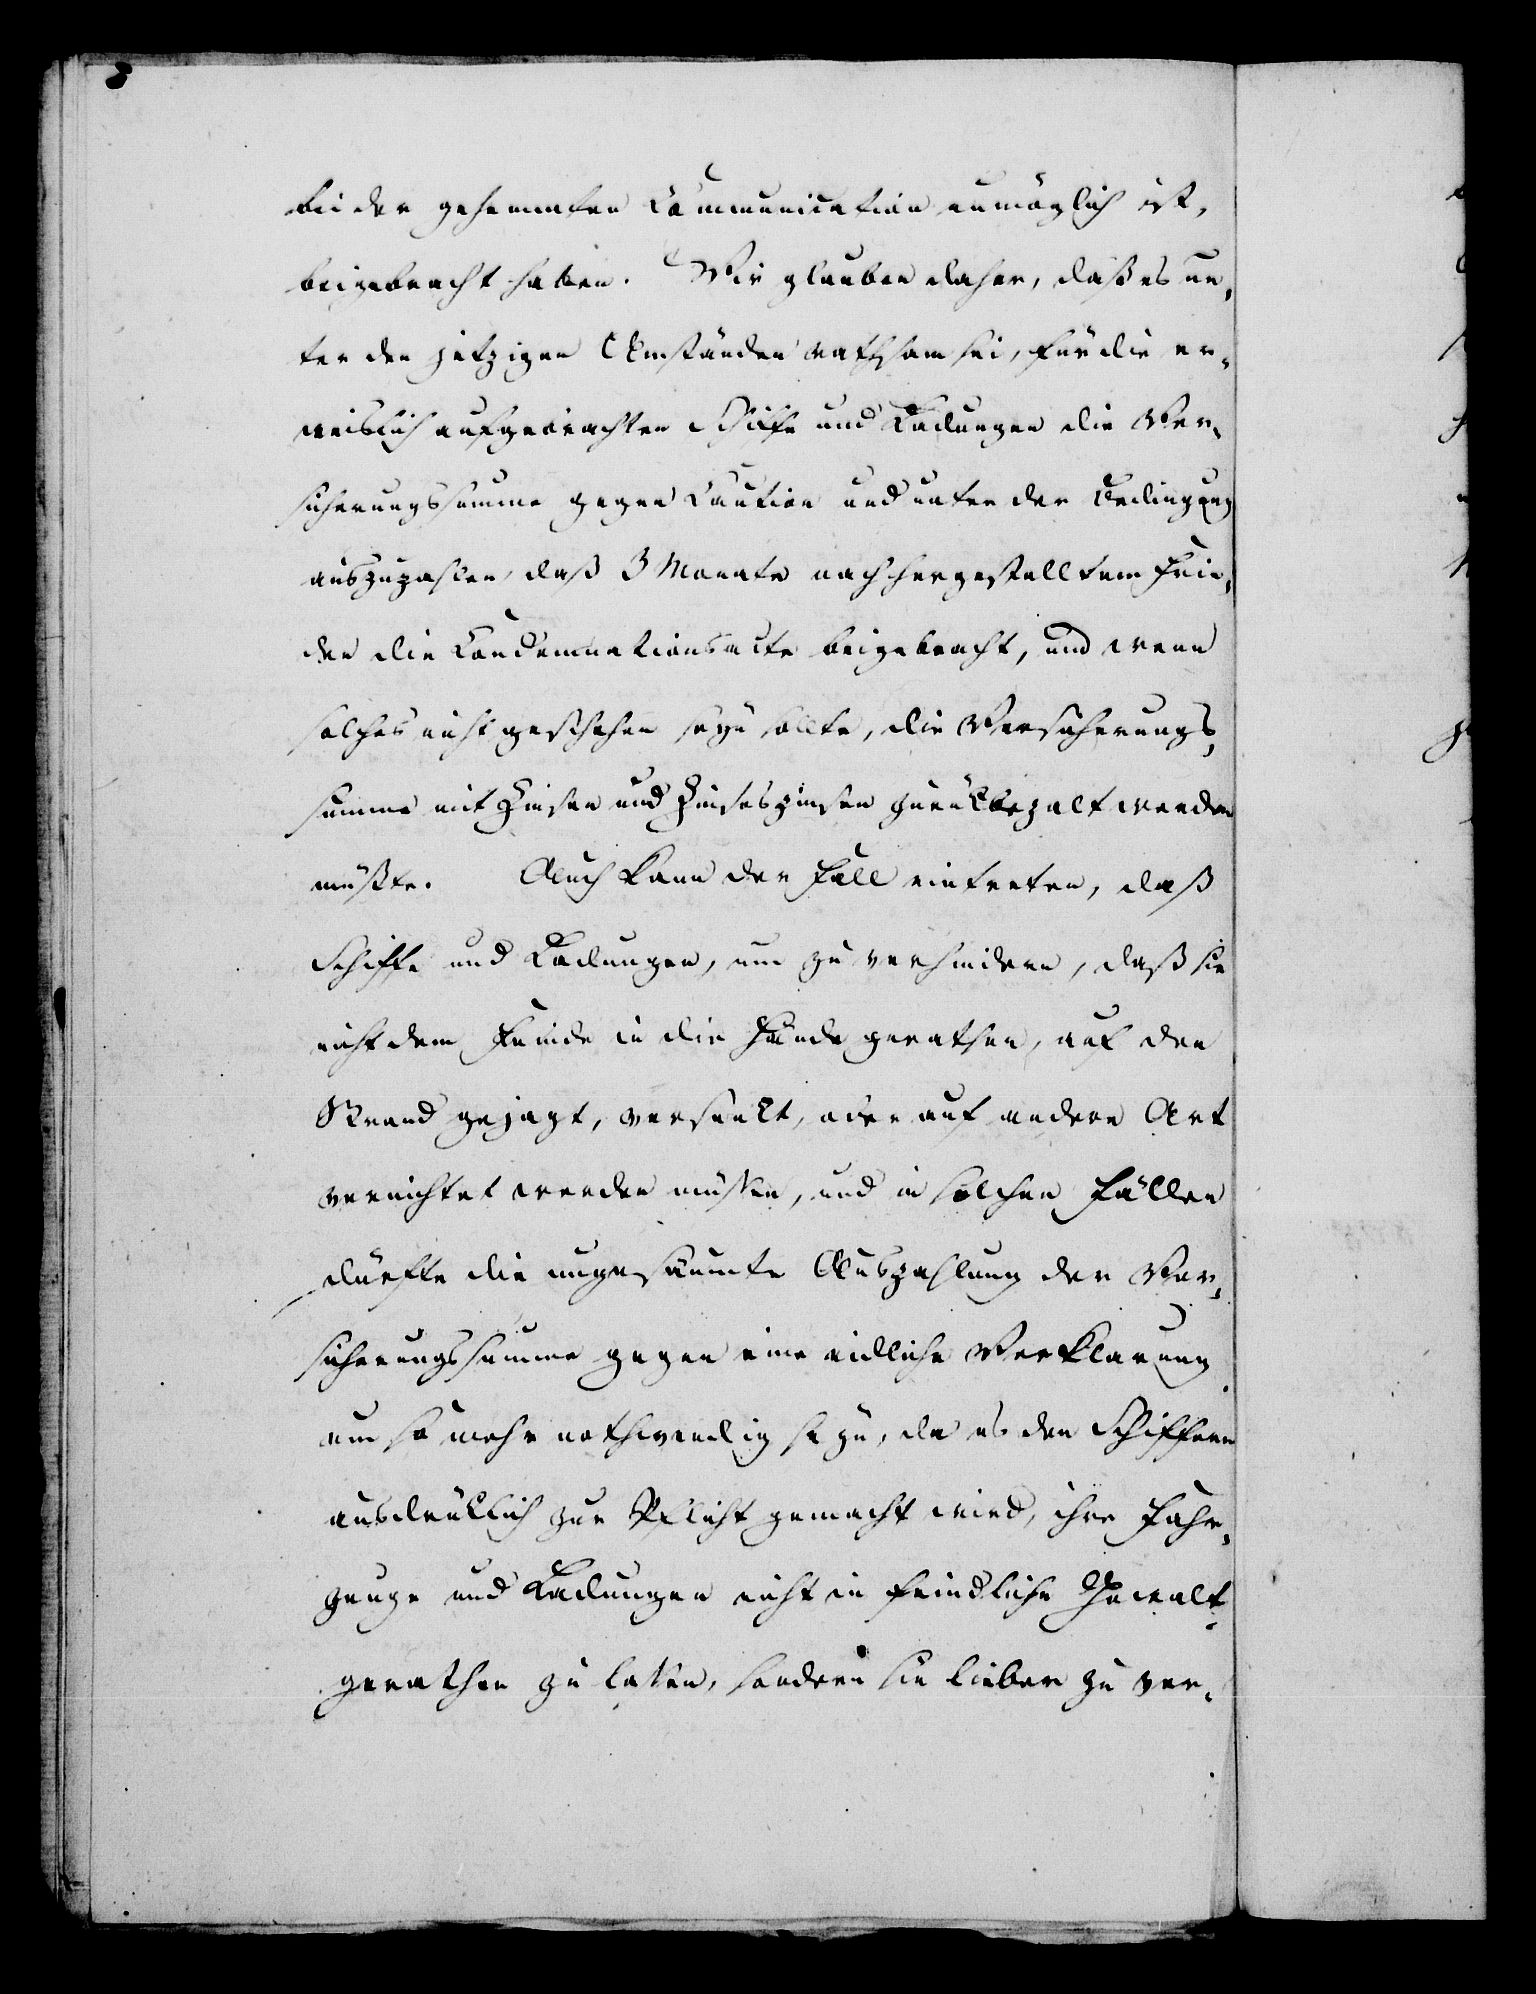 bei der gehemmten Communication unmöglich ist,
beigebracht haben. Wir glauben daher, daß es un,
ter den jetzigen Umständen rathsam sei, für die er,
weislich aufgebrachten Schiffe und Ladungen die Ver,
sicherungssumme gegen Caution und unter der Bedingung
auszuzahlen, daß 3 Monate nach hergestelltem Frie,
den die Condemnationsacte beigebracht, und wenn
solches nicht geschehen seyn sollte, die Versicherungs,
summe mit Zinsen und Zinseszinsen zurükbezalt werden
müßte. Auch kann der Fall eintreten, daß
Schiffe und Ladungen, um zu verhindern, daß sie
nicht dem Feinde in die Hände gerathen, auf den
Strand gejagt, versenkt, oder auf andere Art
vernichtet werden müssen, und in solchen Fällen
dürfte die ungesäumte Auszahlung der Ver,
sicherungssumme gegen eine eidliche Verklarung
um so mehr nothwendig seyn, da es den Schiffern
ausdrüklich zur Pflicht gemacht wird, ihre Fahr,
zeuge und Ladungen nicht in feindliche Gewalt
gerathen zu lassen, sondern sie lieber zu ver,